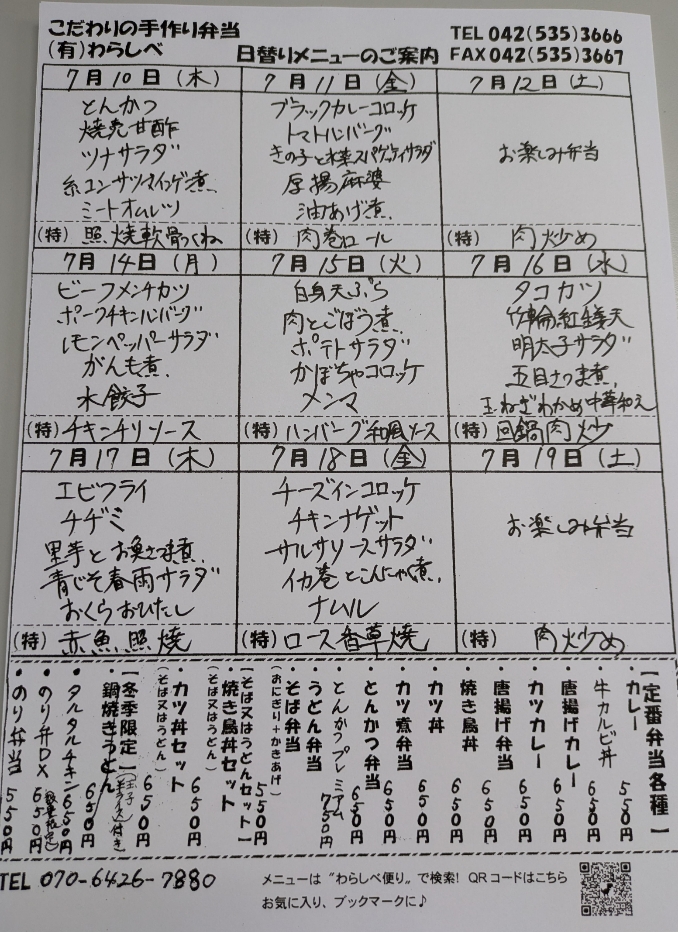 こだわりの手作り弁当
(有)わらしべ
日替りメニューのご案内
TEL 042(535)3666
FAX 042(535)3667
7月10日(木)
とんかつ
焼売甘酢
ツナサラダ
糸コンサツマインゲ煮
ミートオムレツ
(特) 照焼軟骨つくね
7月11日(金)
ブラックカレーコロッケ
トマトハンバーグ
きの子と水菜スパゲッティサラダ
厚揚麻婆
油あげ煮
(特) 肉巻ロール
7月12日(土)
お楽しみ弁当
(特) 肉炒め
7月14日(月)
ビーフメンチカツ
ポークチキンハンバーグ
レモンペッパーサラダ
がんも煮
水餃子
(特) チキンチリソース
7月15日(火)
白身天ぷら
肉とごぼう煮
ポテトサラダ
かぼちゃコロッケ
メンマ
(特) ハンバーグ和風ソース
7月16日(水)
タコカツ
竹輪紅錢天
明太子サラダ
五目さつま煮
玉ねぎわかめ中華和え
(特) 回鍋肉炒
7月17日(木)
エビフライ
チヂミ
里芋とお魚さつま煮
青じそ春雨サラダ
おくらおひたし
(特) 赤魚照焼
7月18日(金)
チーズインコロッケ
チキンナゲット
サルサソースサラダ
イカ巻とこんにゃく煮
ナムル
(特) ロース香草焼
7月19日(土)
お楽しみ弁当
(特) 肉炒め
【定番弁当各種】
・カレー 550円
牛カルビ丼 650円
・唐揚げカレー 650円
・カツカレー 650円
・唐揚げ弁当 650円
・焼き鳥丼 650円
・カツ丼 650円
・カツ煮弁当 650円
・とんかつ弁当 650円
・とんかつプレミアム 750円
・うどん弁当
・そば弁当
(おにぎり+かきあげ) 550円
【そば又はうどんセット】
・焼き鳥丼セット 650円
(そば又はうどん)
・カツ丼セット 650円
(そば又はうどん)
【冬季限定】
鍋焼きうどん 650円
(玉子 半ライス付き)
・タルタルチキン 650円
・のり弁DX 650円
・のり弁当 550円
TEL 070-6426-7880
メニューは“わらしべ便り”で検索! QRコードはこちら
お気に入り、ブックマークに♪